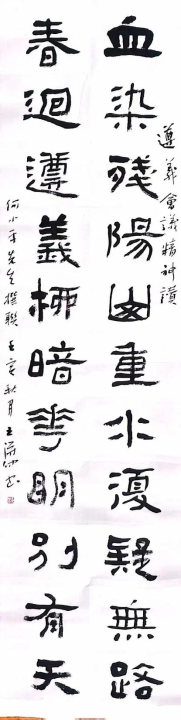 遵義會議精神讚
血染殘陽山重水復疑無路
春迴遵義柳暗花明別有天
何小平先生撰聯 秋月